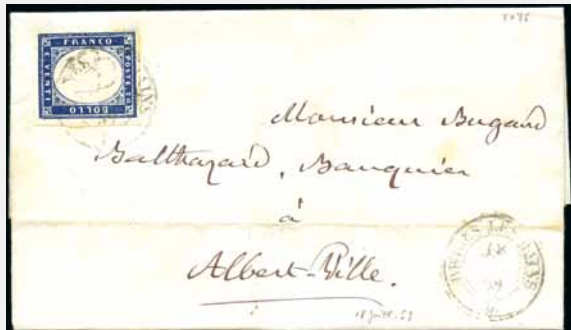 FRANCO
C. POSTA 20
C. VENTI
BOLLO
Monsieur Bugand
Balthazard, Banquier
à
Albert-Ville.
LES BAINS